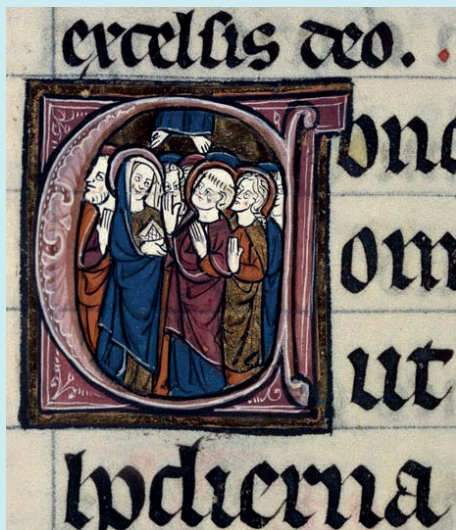 excelsis deo.
Conc
om
ut
hodierna